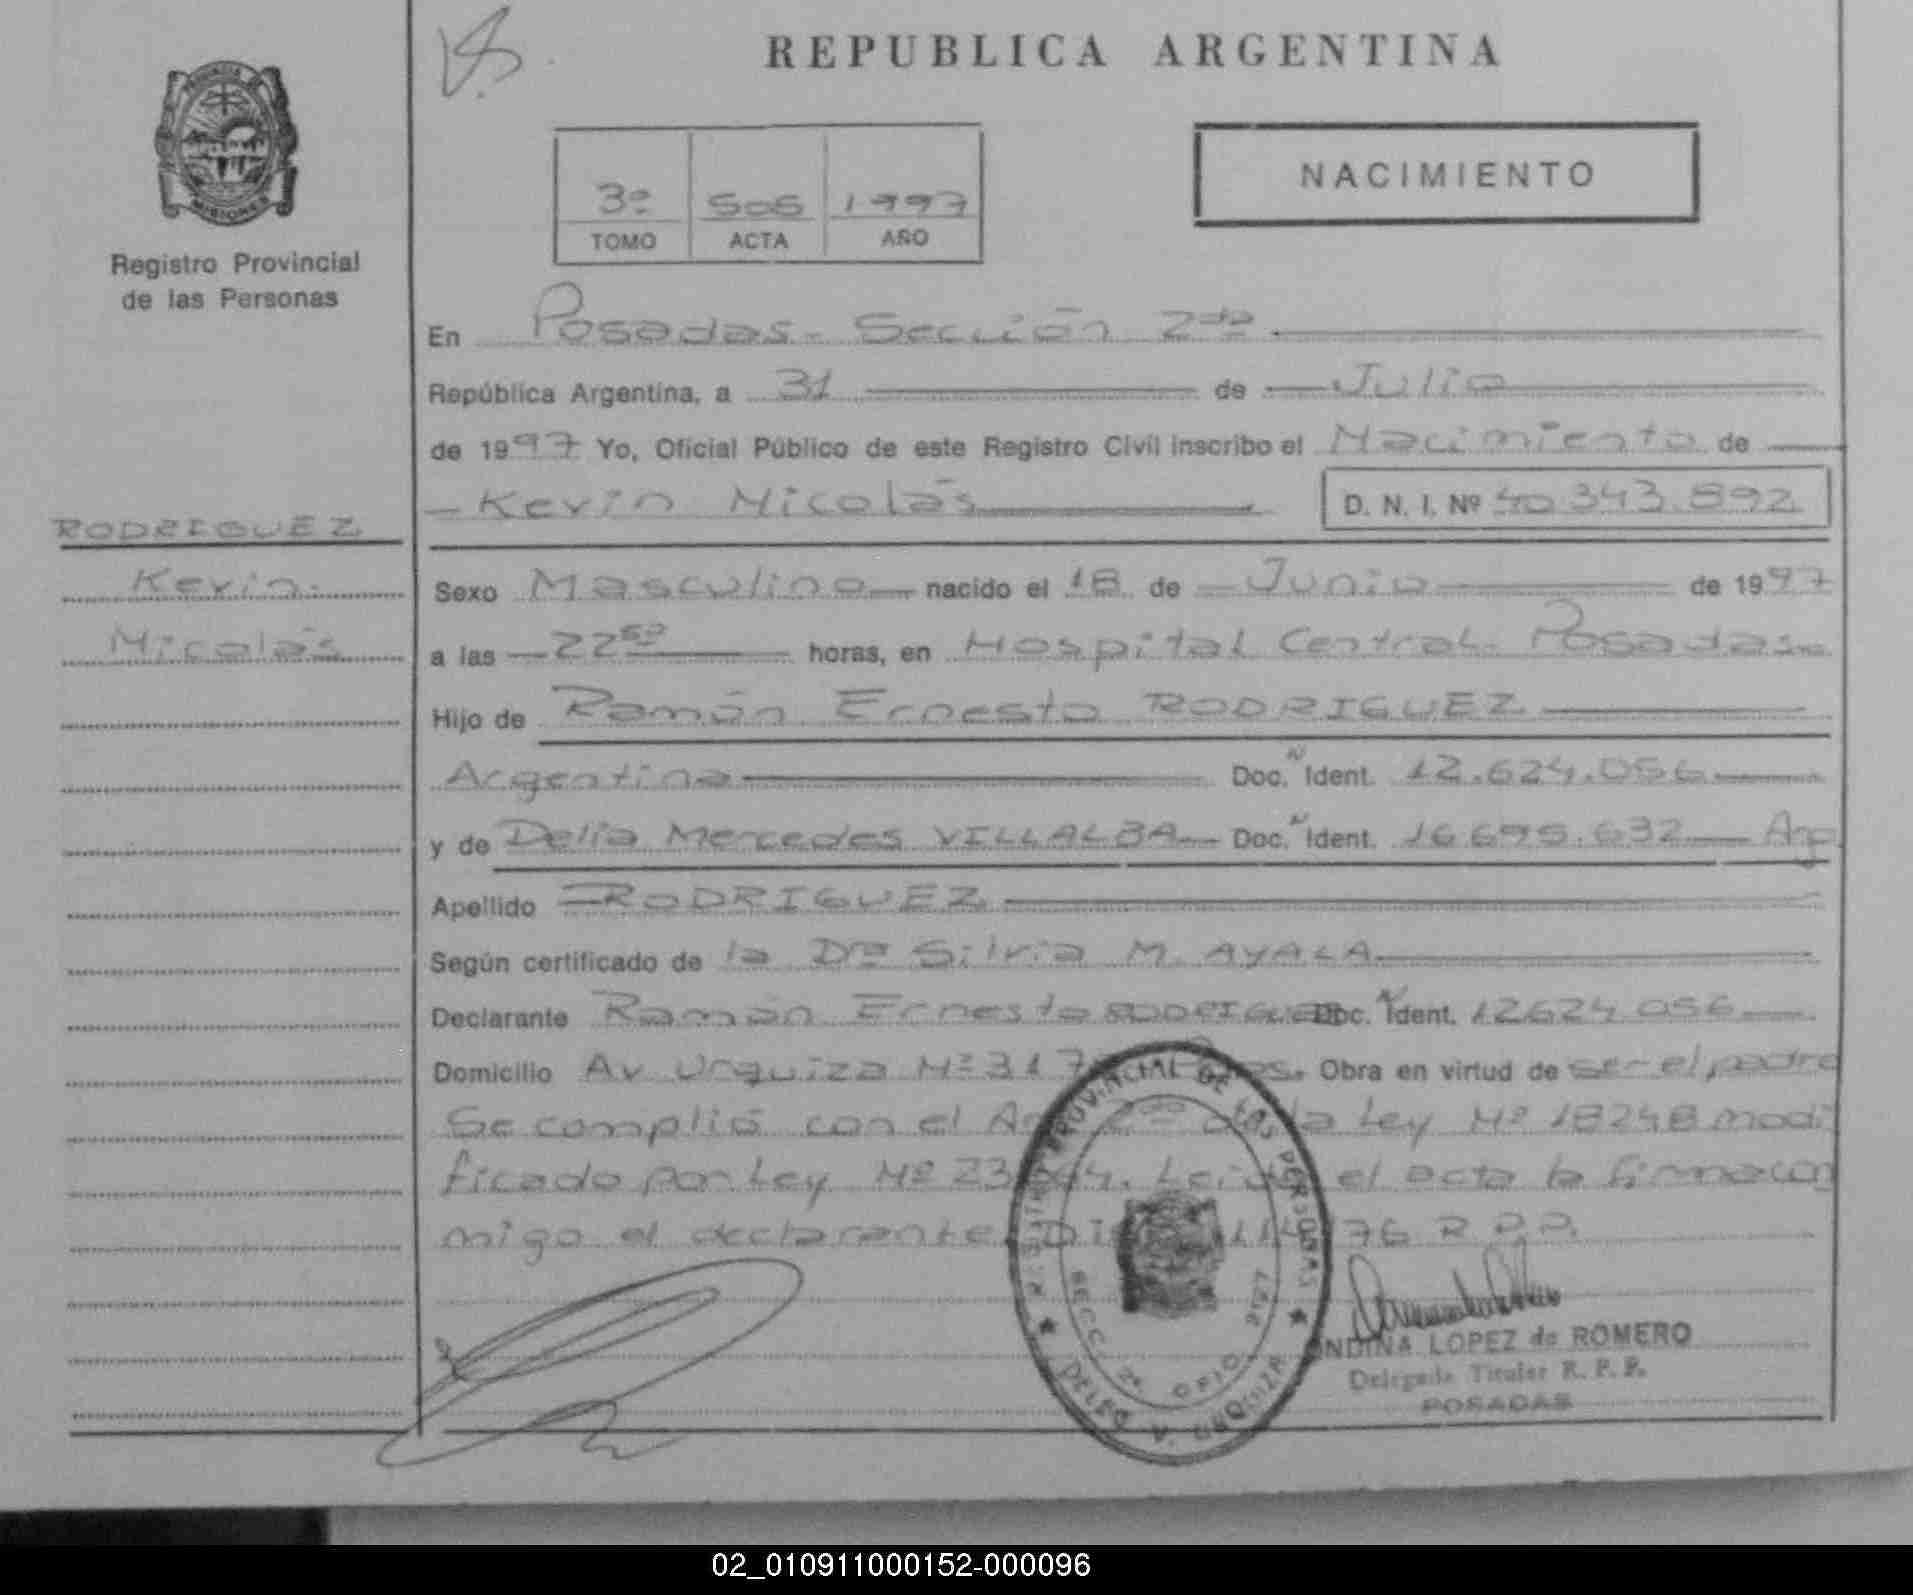 REPUBLICA ARGENTINA
MISIONES
Registro Provincial
de las Personas
3º 505 1997
TOMO ACTA AÑO
NACIMIENTO
En Posadas - Sección 2da
República Argentina, a 31 de Julio
de 1997 Yo, Oficial Público de este Registro Civil inscribo el Nacimiento de
Kevin Nicolás D. N. I. Nº 40 343.892
RODRIGUEZ
Kevin
Nicolás
Sexo Masculino nacido el 18 de Junio de 1997
a las 22 50 horas, en Hospital Central - Posadas
Hijo de Ramón Ernesto RODRIGUEZ
Argentina Doc. N Ident. 12.624.056
y de Delia Mercedes VILLALBA Doc. N Ident. 16.695.632 Arg
Apellido RODRIGUEZ
Según certificado de la Dra Silvia M. AYALA
Declarante Ramón Ernesto RODRIGUEZ Doc. N Ident. 12624.056
Domicilio Av Urquiza Nº 317 Obra en virtud de ser el padre
Se complió con el de la Ley Nº 18248 modi
ficado por Ley Nº 23 Leida el acta la firma con
migo el declarante 76 R.P.P.
R. PROVINCIAL DE LAS PERSONAS
SECC. 2ª OFIC. 2157
DELEG. A. URQUIZA
ONDINA LOPEZ de ROMERO
Delegada Titular R. P. P.
POSADAS
02_010911000152-000096